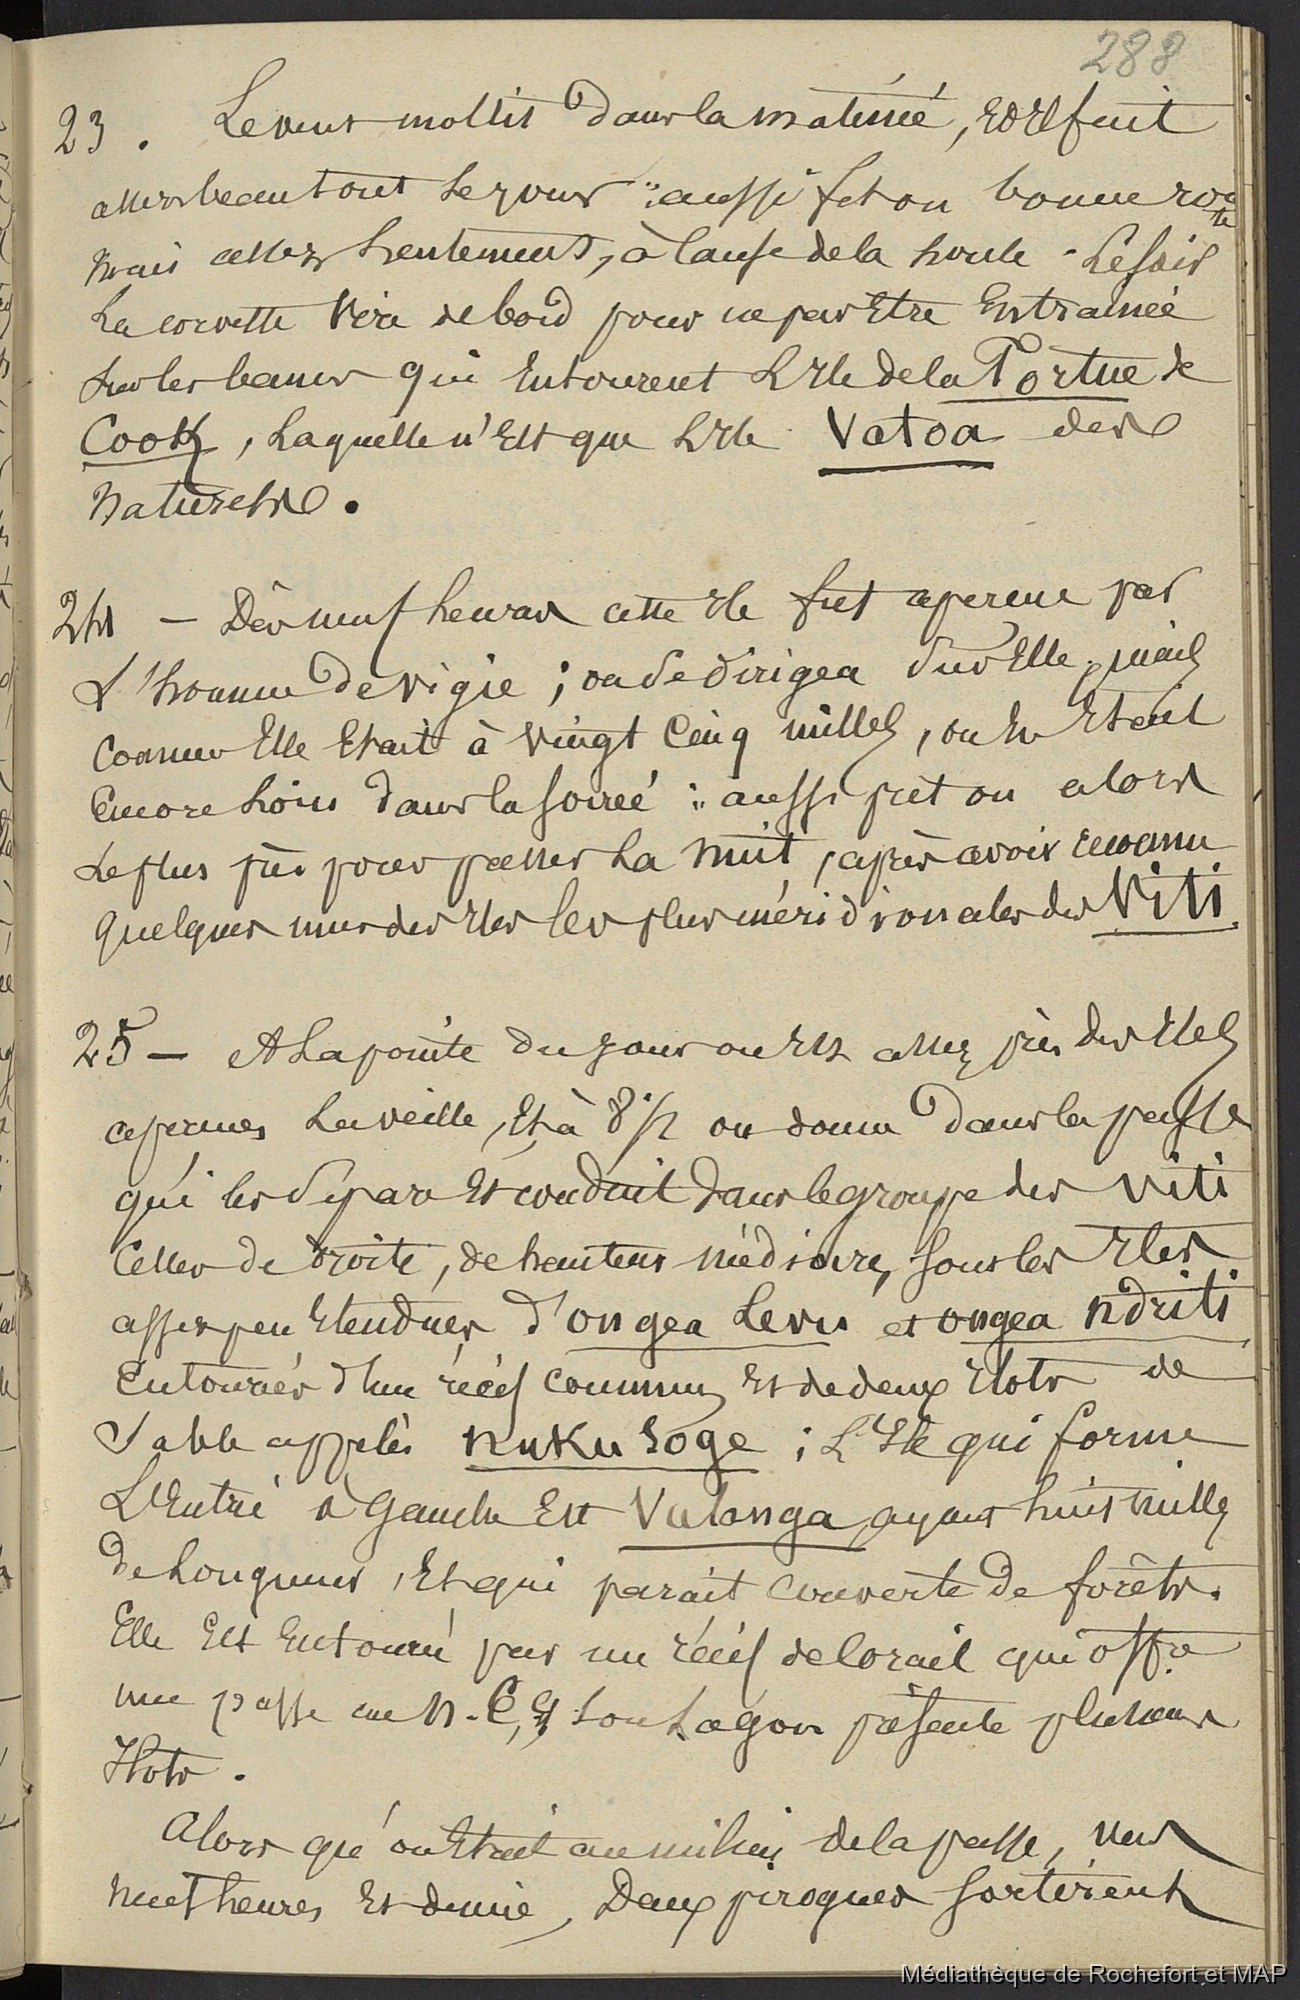 288
23. Le vent mollit dans la matinée, et il fait
assez beau tout le jour : aussi fit on bonne route
mais assez lentement, à cause de la houle. Le soir
La corvette vira de bord pour ne pas Etre Entrainée
sur les bancs qui Entourent L'Ile de la Tortue de
Cook, Laquelle n'Est que L'Ile Vatoa des
Naturels.
24 — Dès neuf heures cette Ile fut aperçue par
L'homme de vigie ; on se dirigea sur Elle, mais
comme Elle Etait à vingt cinq milles, on En Etait
Encore Loin dans la soirée : aussi prit on alors
Le plus près pour passer La nuit, après avoir reconnu
quelques unes des Iles les plus méridionales des Viti.
25 — A La pointe du jour on Est assez près des Iles
aperçues La veille, Et à 8 1/2 on donna dans la passe
qui les sépare Et conduit dans le groupe des Viti
Celles de droite, de hauteur médiocre, sont les Iles
assez peu Etendues d'Ongea Levu et Ongea Ndriti
Entourées d'un récif commun, Et de deux Ilots de
Sable appelés Nuku Soge ; L'Ile qui forme
L'Entrée à Gauche Est Vulanga, ayant huit milles
de Longueur, Et qui parait couverte de forêts.
Elle Est Entourée par un récif de Corail qui offre
une passe au N. E, Et son Lagon présente plusieurs
Ilots.
Alors qu'on Etait au milieu de la passe, vers
neuf heures Et demie, Deux pirogues sortirent
Médiathèque de Rochefort et MAP